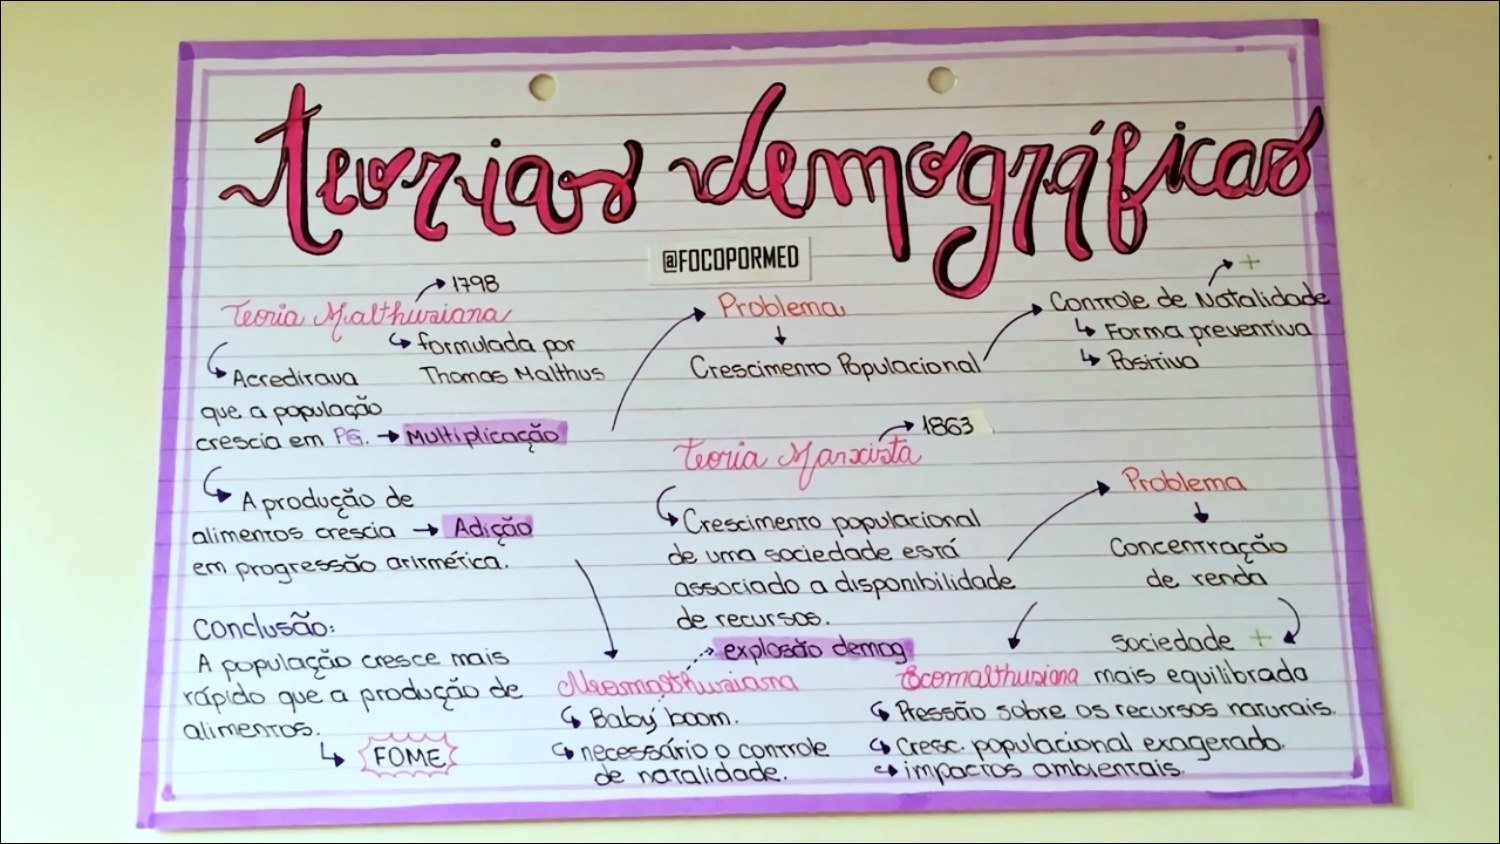 teorias demográficas
@FOCOPORMED
Teoria Malthusiana
1798
formulada por
Thomas Malthus
Acreditava
que a população
crescia em PG. → Multiplicação
A produção de
alimentos crescia → Adição
em progressão aritmética.
Conclusão:
A população cresce mais
rápido que a produção de
alimentos.
FOME
Problema
Crescimento Populacional
+
Controle de Natalidade
Forma preventiva
Positiva
Teoria Marxista
1863
Crescimento populacional
de uma sociedade está
associado a disponibilidade
de recursos.
Problema
Concentração
de renda
sociedade +
mais equilibrada
explosão demog
Neomalthusiana
Baby boom.
necessário o controle
de natalidade.
Ecomalthusiana
Pressão sobre os recursos naturais.
Cresc. populacional exagerado.
impactos ambientais.